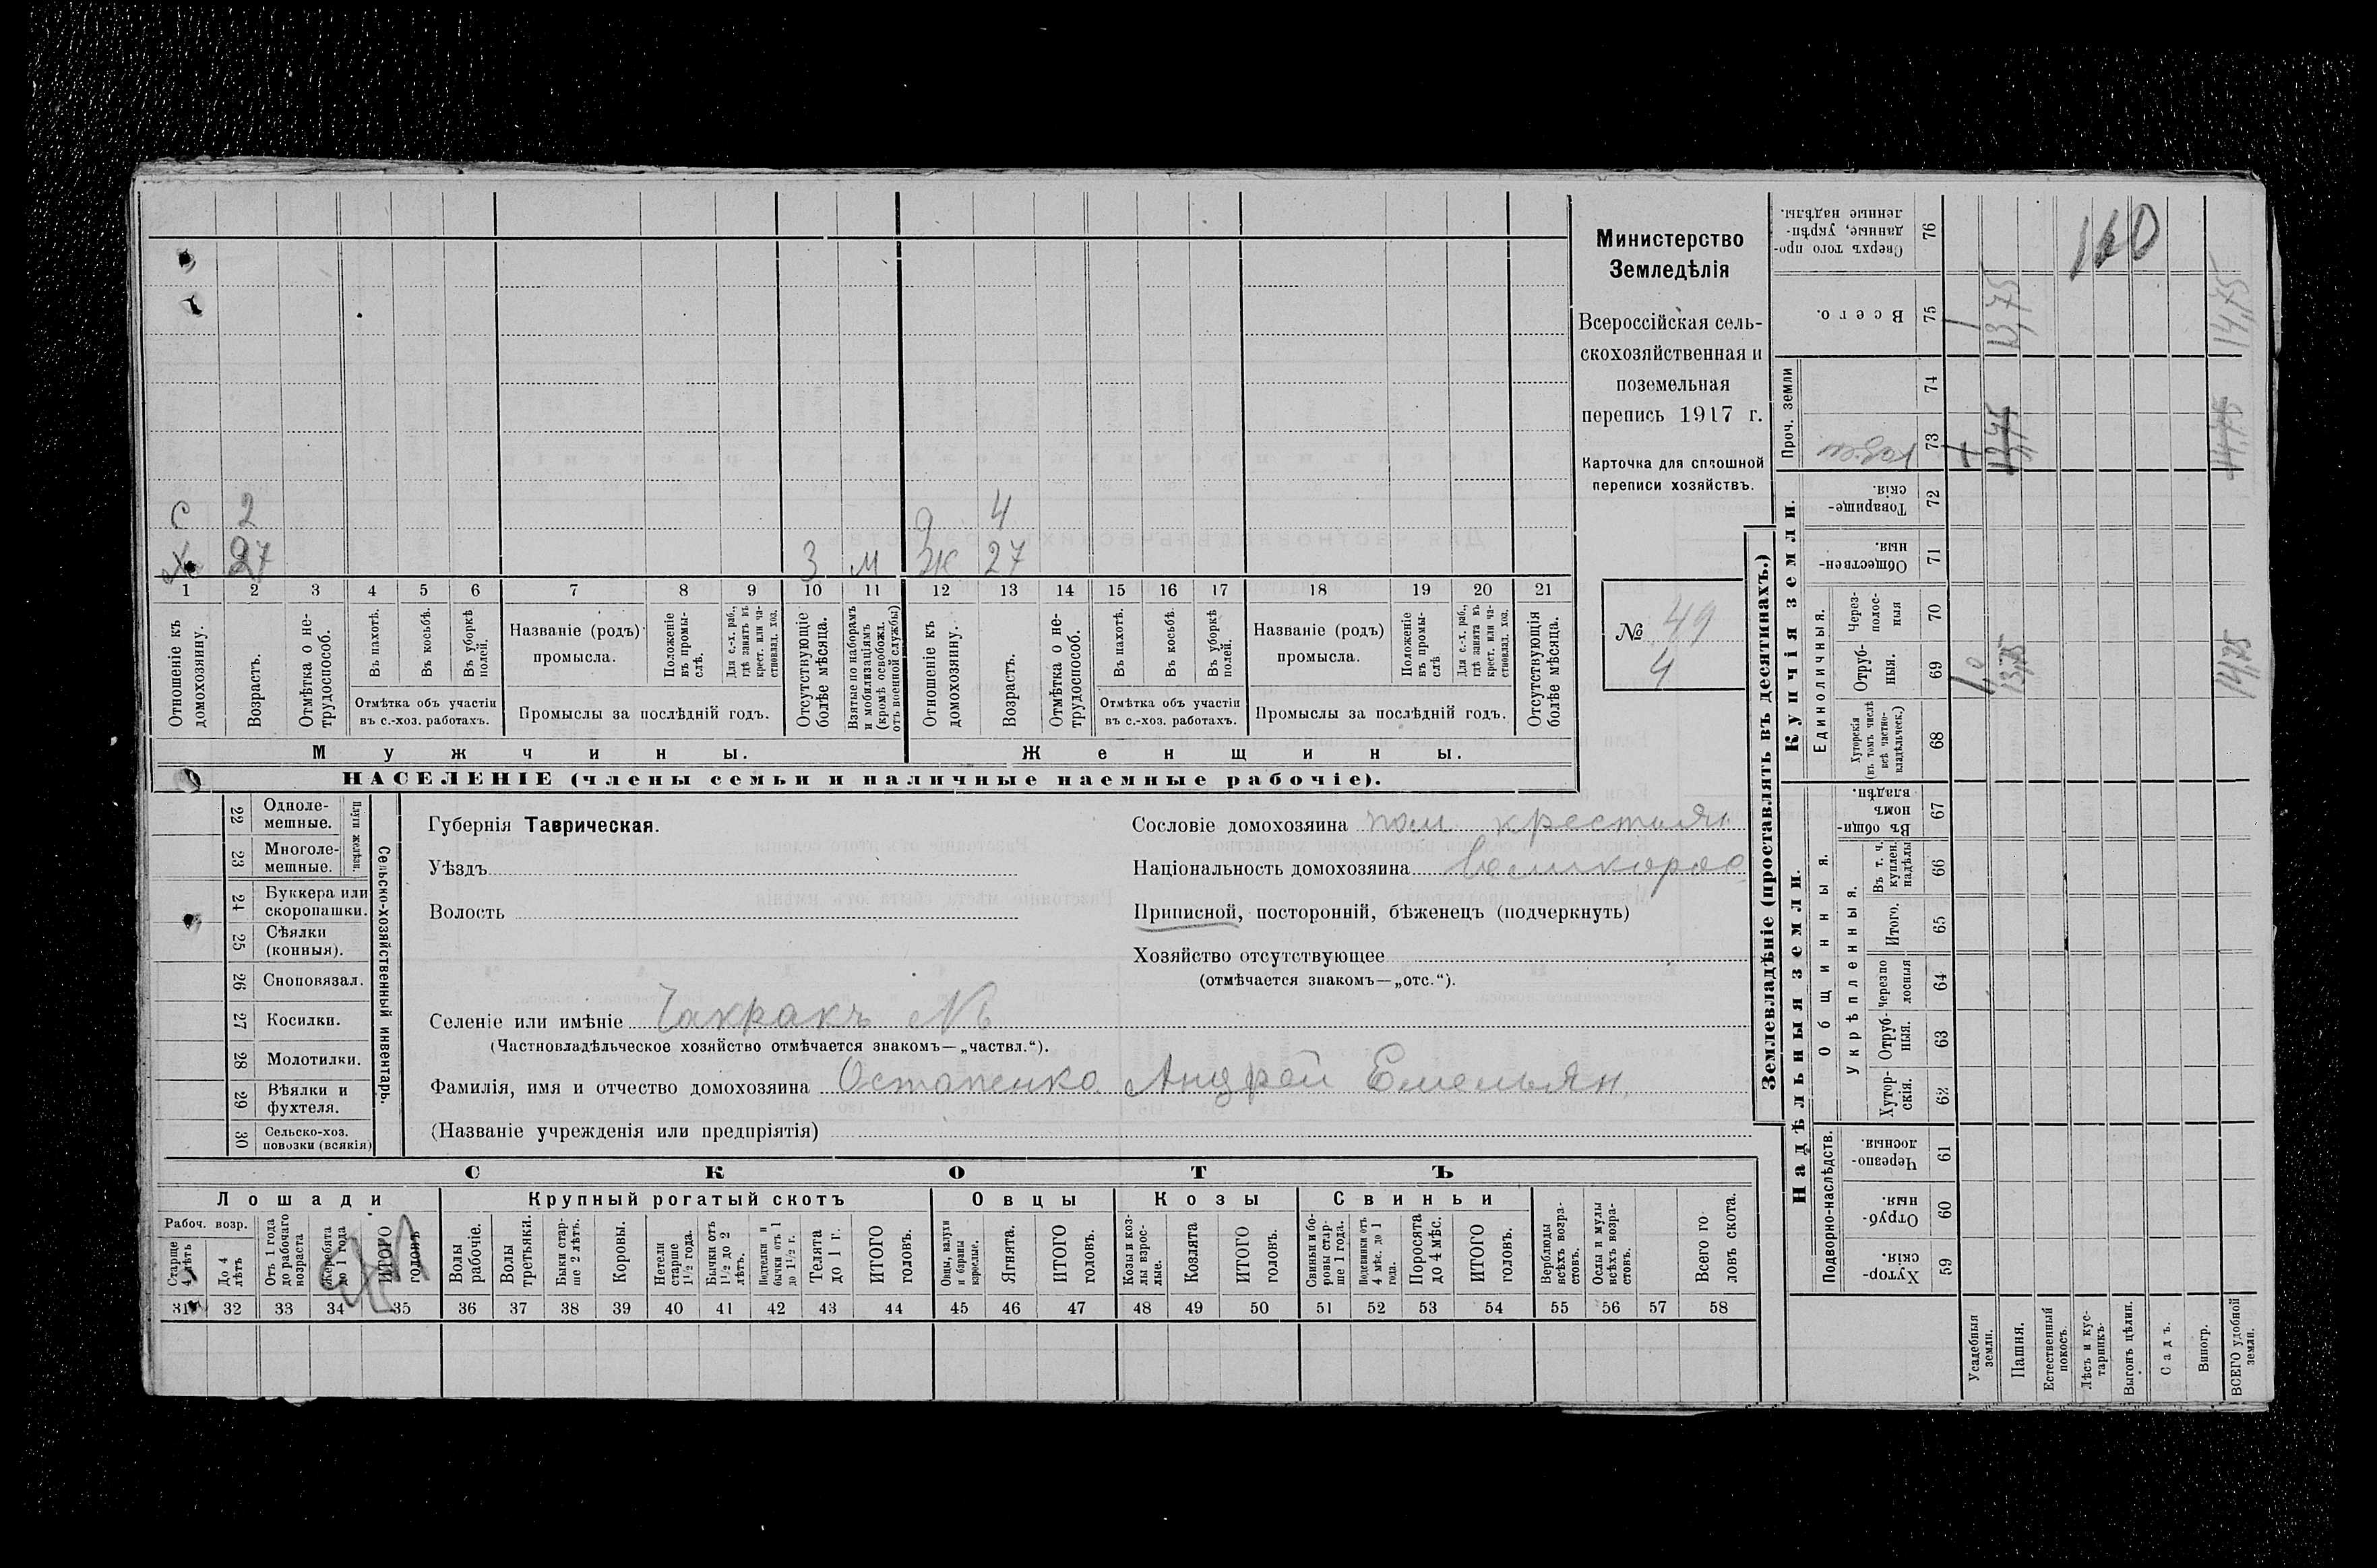 Министерство
Земледѣлія
Всероссійская сель-
скохозяйственная и
поземельная
перепись 1917 г.
Карточка для сплошной
переписи хозяйствъ.
№ 49
4
С 2 4
Х 27 3 м Ж 27
1 2 3 4 5 6 7 8 9 10 11 12 13 14 15 16 17 18 19 20 21
Отношеніе къ домохозяину.
Возрастъ.
Отмѣтка о не-трудоспособ.
Въ пахотѣ.
Въ косьбѣ.
Въ уборкѣ полей.
Отмѣтка объ участіи
въ с.-хоз. работахъ.
Названіе (родъ)
промысла.
Положеніе въ промы-слѣ.
Для с.-х. раб., гдѣ занятъ въ крест. или ча-стновлад. хоз.
Промыслы за послѣдній годъ.
Отсутствующіе болѣе мѣсяца.
Взятые по наборамъ и мобилизаціямъ (кромѣ освобожд. отъ военной службы)
Отношеніе къ домохозяину.
Возрастъ.
Отмѣтка о не-трудоспособ.
Въ пахотѣ.
Въ косьбѣ.
Въ уборкѣ полей.
Отмѣтка объ участіи
въ с.-хоз. работахъ.
Названіе (родъ)
промысла.
Положеніе въ промы-слѣ
Для с.-х. раб., гдѣ занята въ крест. или ча-стновлад. хоз.
Промыслы за послѣдній годъ.
Отсутствующія болѣе мѣсяца.
Мужчины. Женщины.
НАСЕЛЕНІЕ (члены семьи и наличные наемные рабочіе).
Сельско-хозяйственный инвентарь.
Плуги желѣзн.
22 Одноле-мешные.
23 Многоле-мешные.
24 Буккера или скоропашки.
25 Сѣялки (конныя).
26 Сноповязал.
27 Косилки.
28 Молотилки.
29 Вѣялки и фухтеля.
30 Сельско-хоз. повозки (всякія)
Губернія Таврическая.
Уѣздъ
Волость
Селеніе или имѣніе Чакракъ №
(Частновладѣльческое хозяйство отмѣчается знакомъ—„частвл.“).
Фамилія, имя и отчество домохозяина Остапенко Андрей Емельян.
(Названіе учрежденія или предпріятія)
Сословіе домохозяина крестьян
Національность домохозяина Великорос
Приписной, посторонній, бѣженецъ (подчеркнуть)
Хозяйство отсутствующее
(отмѣчается знакомъ—„отс.“).
СКОТЪ
Лошади Крупный рогатый скотъ Овцы Козы Свиньи
Рабоч. возр.
Старше 4 лѣтъ
До 4 лѣтъ
Отъ 1 года до рабочаго возраста
Жеребята до 1 года
ИТОГО головъ
Волы рабочіе.
Волы третьяки.
Быки стар-ше 2 лѣтъ.
Коровы.
Нетели старше 1½ года.
Бычки отъ 1½ до 2 лѣтъ.
Подтелки и бычки отъ 1 до 1½ г.
Телята до 1 г.
ИТОГО головъ.
Овцы, валухи и бараны взрослые.
Ягнята.
ИТОГО головъ.
Козы и коз-лы взрос-лые.
Козлята
ИТОГО головъ.
Свиньи и бо-ровы стар-ше 1 года.
Подсвинки отъ 4 мѣс. до 1 года.
Поросята до 4 мѣс.
ИТОГО головъ.
Верблюды всѣхъ возра-стовъ.
Ослы и мулы всѣхъ возра-стовъ.
Всего го ловъ скота.
31 32 33 34 35 36 37 38 39 40 41 42 43 44 45 46 47 48 49 50 51 52 53 54 55 56 57 58
Землевладѣніе (проставлять въ десятинахъ.)
Надѣльныя земли.
Подворно-наслѣдств.
Хутор-скія. 59
Отруб-ныя. 60
Черезпо-лосныя. 61
Общинныя.
Укрѣпленныя.
Хутор-скія. 62
Отруб-ныя. 63
Черезпо лосныя 64
Итого. 65
Въ т. ч. куплен. надѣлы 66
Въ общи-номъ владѣн. 67
Купчія земли.
Единоличныя.
Хуторскія (въ томъ числѣ всѣ частно-владѣльческ.) 68
Отруб-ныя. 69 1,0 13,75 14,75
Через-полос-ныя 70
Обществен-ныя. 71
Товарище-скія. 72
Проч. земли
73
74
Всего. 75 1 13,75 14,75
Сверхъ того про-данные, укрѣп-ленные надѣлы. 76
Усадебныя земли.
Пашня.
Естественный покосъ.
Лѣсъ и кус-тарникъ.
Выгонъ цѣлин.
Садъ.
Виногр.
ВСЕГО удобной земли.